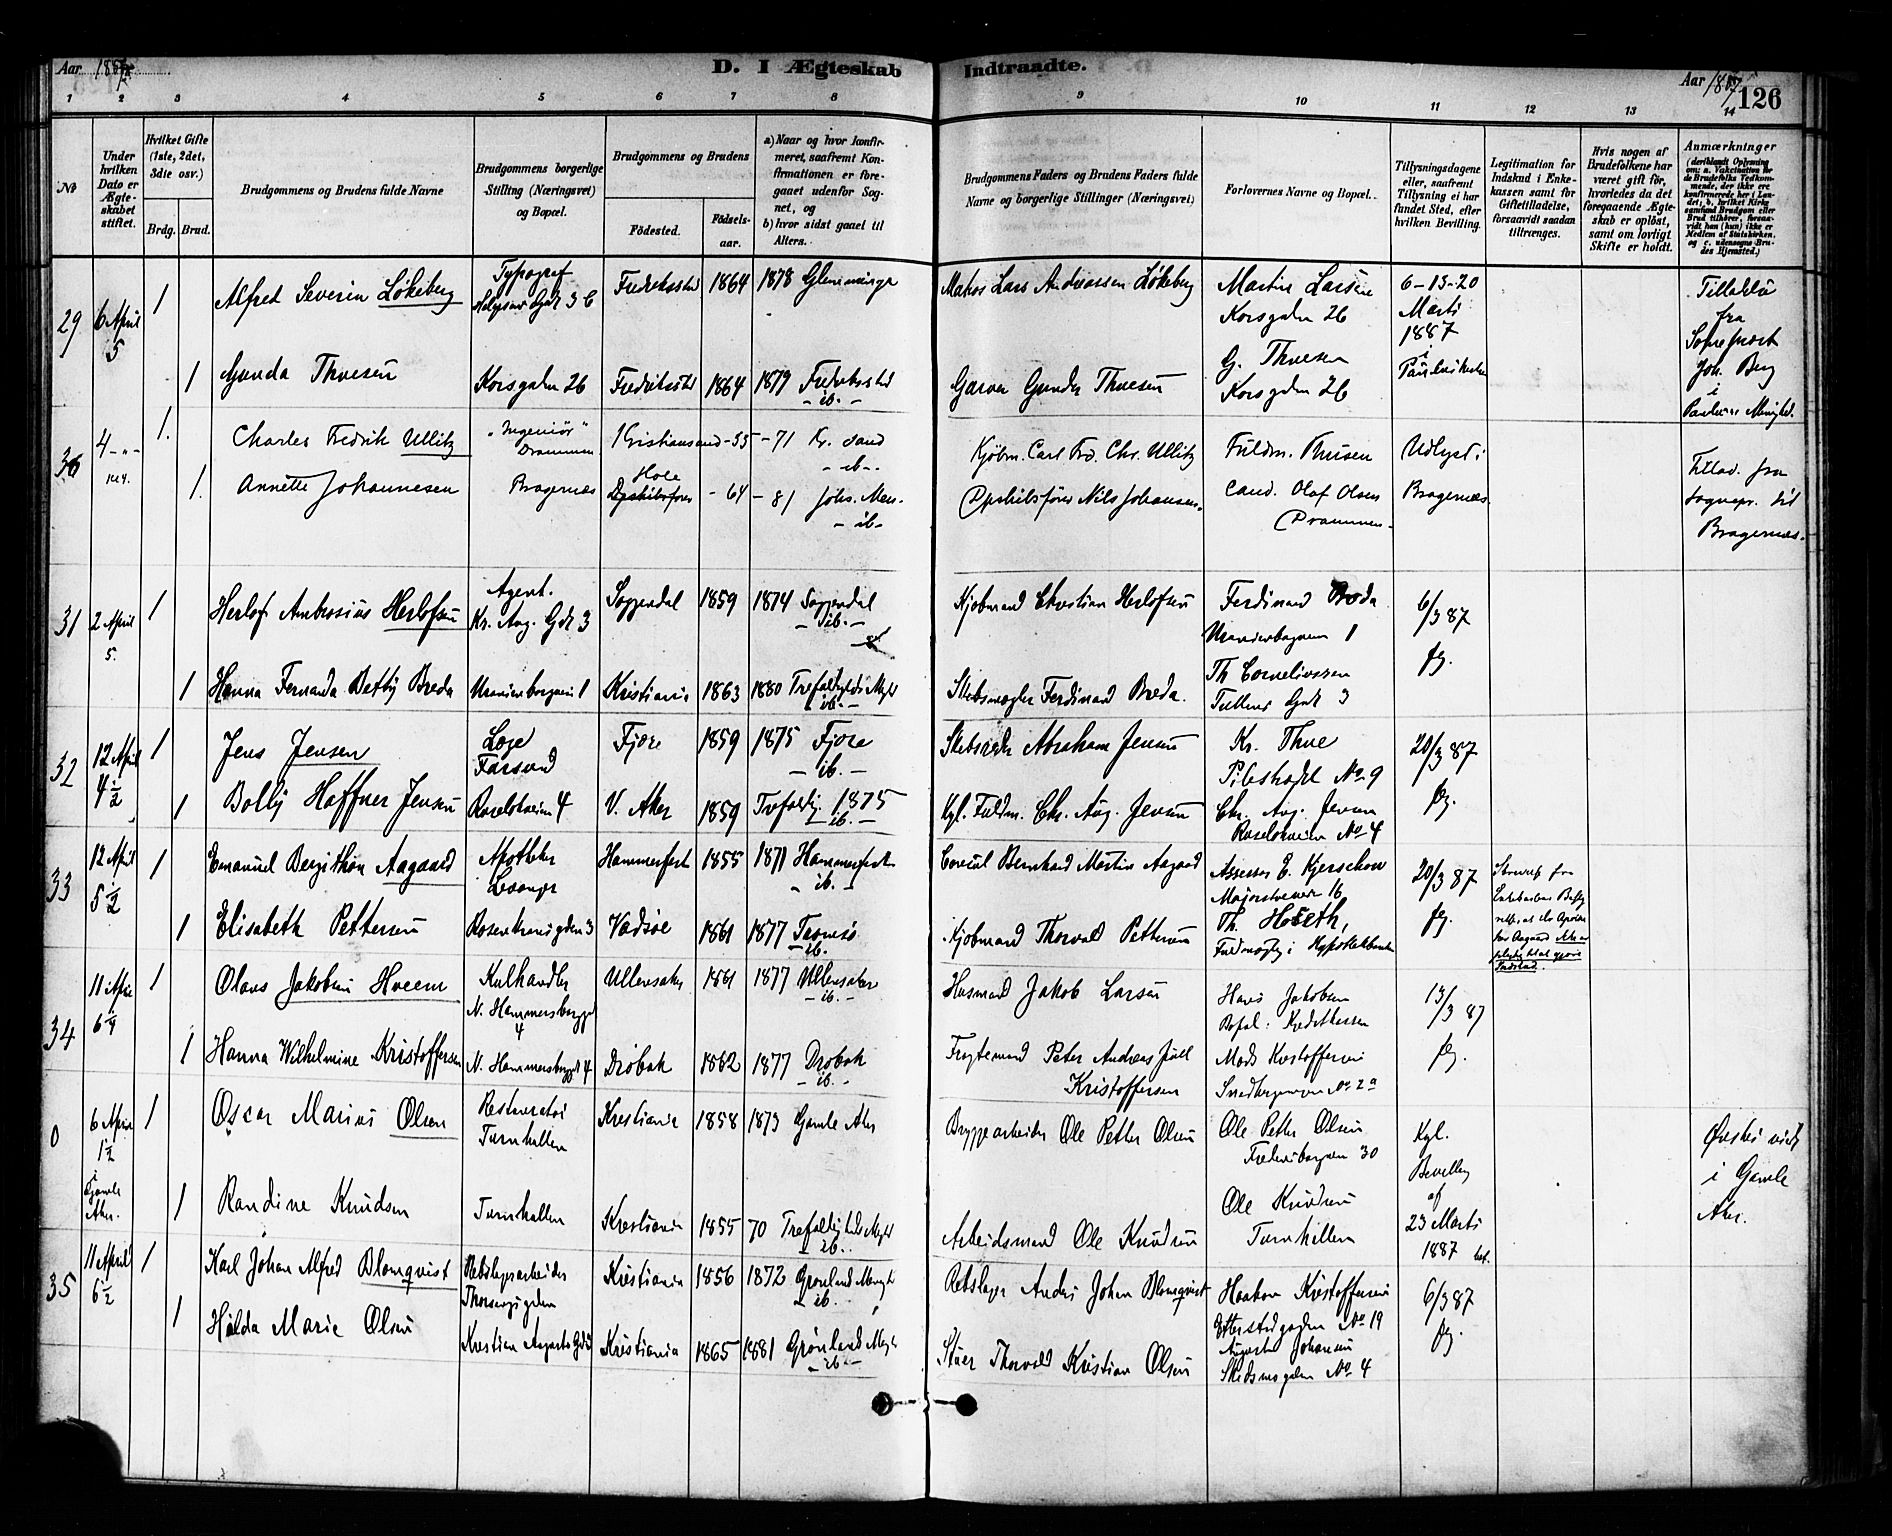 Aar 1887. D. I Ægteskab Indtraadte. Aar 1887. 126
1 2 3 4 5 6 7 8 9 10 11 12 13 14
No
Under hvilken Dato er Ægteskabet stiftet.
Hvilket Gifte (1ste, 2det, 3die osv.)
Brdg. Brud.
Brudgommens og Brudens fulde Navne
Brudgommens borgerlige Stilling (Næringsvei) og Bopæl.
Brudgommens og Brudens
Fødested. Fødsels-aar.
a) Naar og hvor konfirmeret, saafremt Konfirmationen er foregaaet udenfor Sognet, og
b) hvor sidst gaaet til Alters.
Brudgommens Faders og Brudens Faders fulde Navne og borgerlige Stillinger (Næringsvei)
Forlovernes Navne og Bopæl.
Tillysningsdagene eller, saafremt Tillysning ei har fundet Sted, efter hvilken Bevilling.
Legitimation for Indskud i Enkekassen samt for Giftetilladelse, forsaavidt saadan tiltrænges.
Hvis nogen af Brudefolkene har været gift før, hvorledes da det foregaaende Ægteskab er opløst, samt om lovligt Skifte er holdt.
Anmærkninger
(deriblandt Oplysning om: a. Vakcination for de Brudefolks Vedkommende, der ikke ere konfirmerede her i Landet; b. hvilket Kirkesamfund Brudgom eller Brud tilhører, forsaavidt han (hun) ikke er Medlem af Statskirken, og c. udensogns Brudes Hjemsted.)
29 6 April 5 1 Alfred Severin Løkeberg Typograf 3 C Fredrikstad 1864 1878 Glemminge
Lars Andreassen Løkeberg Martin Larsen Korsgaden 26 6-13-20 Marts 1887 i
Tilladelse fra Sognepræst Joh. Berg i Paulus Menighed.
1 Gunda Thuesen Korsgaden 26 Fredrikstad 1864 1879 Fredrikstad - ib. -
Garver Gunder Thuesen G. Thuesen Korsgaden 26
30 4 - " - 1 Charles Fredrik Ullitz "Ingeniør" Drammen Kristiansand - 55 - 71 Kr. sand - ib -
Kjøbm. Carl Fred. Chr. Ullitz Fuldm. Thusen Udlyst i Bragernæs.
Tillad. fra Sognepr. til Bragernæs.
1. Annette Johannesen Bragernæs Hole - 64 - 81 Johs. Men. - ib -
Nils Johansen. Cand. Olaf Olsen Drammen -
31 2 April 5. 1 Herlof Ambrosius Herlofsen Agent. Kr. Aug. Gdt 3 Soggendal 1859 1874 Soggendal - ib. -
Kjøbmand Christian Herlofsen Ferdinand Breda Uranienborgveien 1 6/3 87 fg.
1 Hanna Fernanda Betby Breda Uranienborgveien 1 Kristiania 1863 1880 Trefoldigheds Mgh - ib. -
Skibsmægler Ferdinand Breda. Th. Corneliussen Tullins Gade 3
32 12 April 4 1/2 1 Jens Jensen Farsund Fjære 1859 1875 Fjære - ib. -
Abraham Jensen Kr. Thue Pilestrædet No 9 20/3 87 fg.
1 Bolly Haffner Jensen 4 V. Aker 1859 Trefoldig. 1875 - ib. -
Kgl. Fuldm. Chr. Aug. Jensen Chr. Aug. Jensen No 4
33 12 April 5 1/2 1 Emanuel Bergithon Aagaard Apotheker Levanger Hammerfest 1855 1871 Hammerfest - ib. -
Consul Bernhard Martin Aagaard Assessor E. Kjerschow Majorstuveien 16 20/3 87 fg.
1 Elisabeth Pettersen Rosenkransgden 3 Vadsøe 1861 1877 Tromsø - ib.
Kjøbmand Thorvald Pettersen Th. Hoseth, Fuldmægtig i Hypothekbanken
34 11 April 6 1/4 1 Olaus Jakobsen Hveem Kulhandler N. Hammersborggd 4 Ullensaker 1861 1877 Ullensaker - ib. -
Husmand Jakob Larsen Hans Jakobsen 13/3 87 fg.
1 Hanna Wilhelmine Kristoffersen N. Hammersborggd 4 Drøbak 1862 1877 Drøbak - ib. -
Peter Andreas Juell Kristoffersen Mads Kristoffersen No 2a
0 6 April 1 1/2 i Gamle Aker. 1 Oscar Marius Olsen Restauratør Turnhallen Kristiania 1858 1873 Gamle Aker
Bryggearbeider Ole Petter Olsen Ole Petter Olsen 30 Kgl. Bevilling af 23 Marts 1887
viet i Gamle Aker.
1 Randine Knudsen Turnhallen Kristiania 1855 70 Trefoldigheds Mgh - ib. -
Arbeidsmand Ole Knudsen Ole Knudsen Turnhallen
35 11 April 6 1/2 1 Karl Johan Alfred Blomqvist Rebslagerarbeider Kristiania 1856 1872 Grønland Mengh - ib.
Rebslager Anders Johan Blomqvist Haakon Kristoffersen Etterstadgaden No 19 6/3 87 fg.
1 Hilda Marie Olsen Kristian Augusts Gd Kristiania 1865 1881 Grønland Mgh - ib. -
Thorvald Kristian Olsen August Johansen No 4